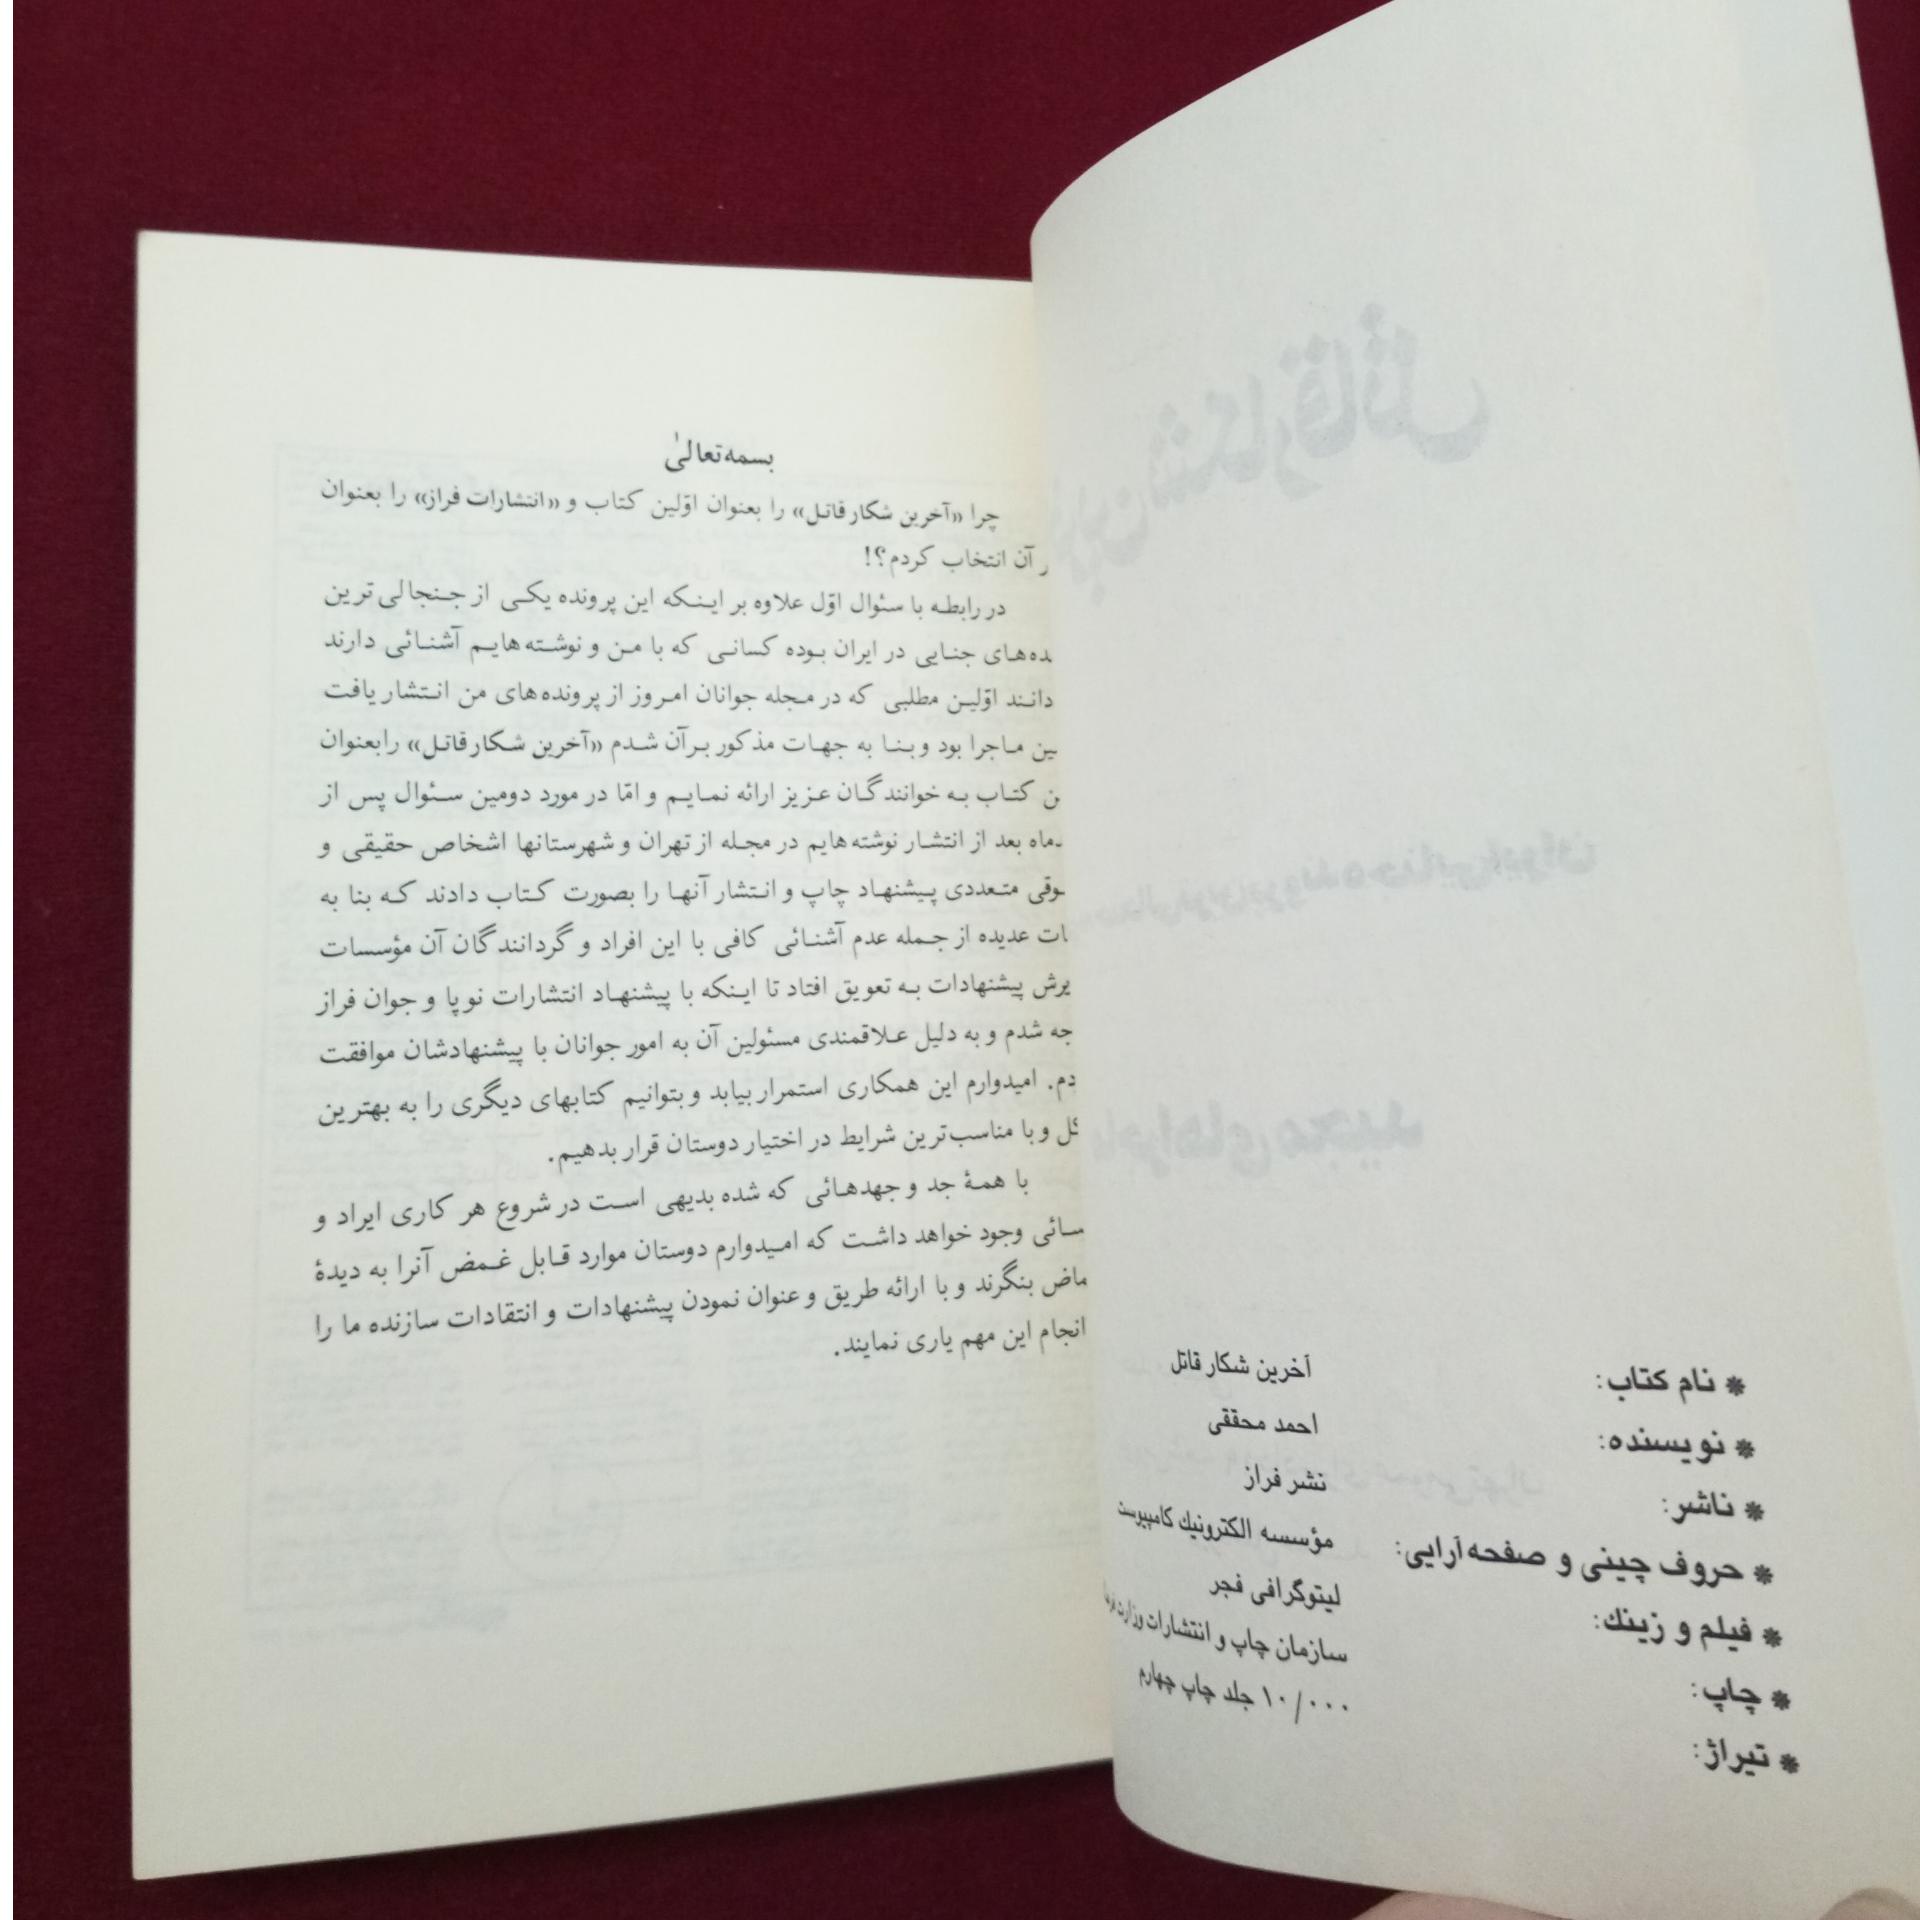 * نام کتاب: آخرین شکار قاتل
* نویسنده: احمد محققی
* ناشر: نشر فراز
* حروف چینی و صفحه‌آرایی: مؤسسه الکترونیك کامپیوست
* فیلم و زینك: لیتوگرافی فجر
* چاپ: سازمان چاپ و انتشارات وزارت
* تیراژ: ۱۰/۰۰۰ جلد چاپ چهارم
بسمه‌تعالیٰ
چرا «آخرین شکار قاتل» را بعنوان اوّلین کتاب و «انتشارات فراز» را بعنوان
آن انتخاب کردم؟!
در رابطه با سئوال اوّل علاوه بر اینکه این پرونده یکی از جنجالی‌ترین
ده‌های جنایی در ایران بوده کسانی که با من و نوشته‌هایم آشنائی دارند
دانند اوّلین مطلبی که در مجله جوانان امروز از پرونده‌های من انتشار یافت
ین ماجرا بود و بنا به جهات مذکور بر آن شدم «آخرین شکار قاتل» را بعنوان
ن کتاب به خوانندگان عزیز ارائه نمایم و امّا در مورد دومین سئوال پس از
دماه بعد از انتشار نوشته‌هایم در مجله از تهران و شهرستانها اشخاص حقیقی و
وقی متعددی پیشنهاد چاپ و انتشار آنها را بصورت کتاب دادند که بنا به
ات عدیده از جمله عدم آشنائی کافی با این افراد و گردانندگان آن مؤسسات
یرش پیشنهادات به تعویق افتاد تا اینکه با پیشنهاد انتشارات نوپا و جوان فراز
جه شدم و به دلیل علاقمندی مسئولین آن به امور جوانان با پیشنهادشان موافقت
دم. امیدوارم این همکاری استمرار بیابد و بتوانیم کتابهای دیگری را به بهترین
کل و با مناسب‌ترین شرایط در اختیار دوستان قرار بدهیم.
با همۀ جد و جهدهائی که شده بدیهی است در شروع هر کاری ایراد و
سائی وجود خواهد داشت که امیدوارم دوستان موارد قابل غمض آنرا به دیدۀ
ماض بنگرند و با ارائه طریق و عنوان نمودن پیشنهادات و انتقادات سازنده ما را
انجام این مهم یاری نمایند.